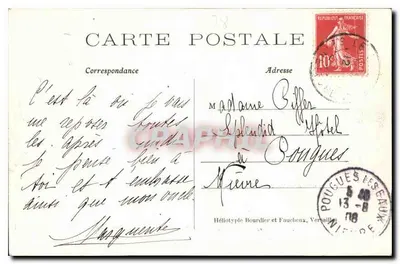 CARTE POSTALE
Correspondance
Adresse
REPUBLIQUE FRANÇAISE
10
POSTES
C'est là où je vais
me reposer toutes
les après midi
je pense bien à
toi et t'embrasse
ainsi que mon oncle
Marguerite
Madame Piffer
Splendid Hôtel
à
Pougues
Nièvre
POUGUES-LES-EAUX
4 40
13 -8
08
NIEVRE
Héliotypie Bourdier et Faucheux, Versailles